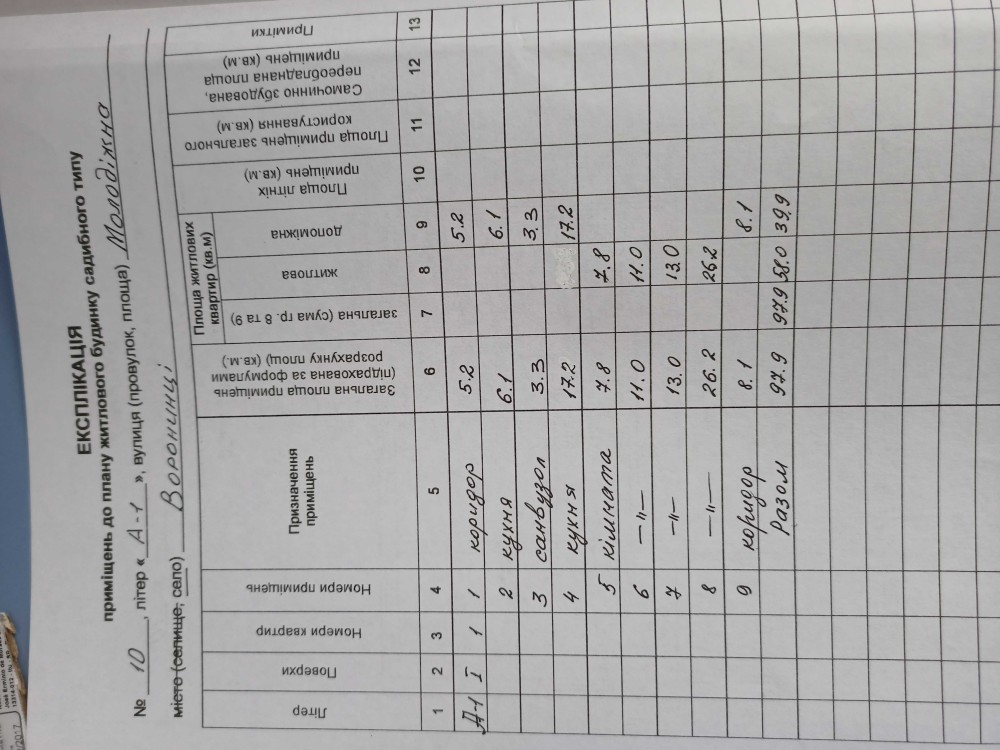 ЕКСПЛІКАЦІЯ
приміщень до плану житлового будинку садибного типу
№ 10, літер « А-1 », вулиця (провулок, площа) Молодіжна
місто (селище, село) Воронинці
Літер | Поверхи | Номери квартир | Номери приміщень | Призначення приміщень | Загальна площа приміщень (підрахована за формулами розрахунку площ) (кв.м.) | Площа житлових квартир (кв.м) | загальна (сума гр. 8 та 9) | житлова | допоміжна | Площа літніх приміщень (кв.м) | Площа приміщень загального користування (кв.м) | Самочинно збудована, переобладнана площа приміщень (кв.м) | Примітки
1 2 3 4 5 6 7 8 9 10 11 12 13
А-1 I 1 1 коридор 5.2 5.2
2 кухня 6.1 6.1
3 санвузол 3.3 3.3
4 кухня 17.2 17.2
5 кімната 7.8 7.8
6 —"— 11.0 11.0
7 —"— 13.0 13.0
8 —"— 26.2 26.2
9 коридор 8.1 8.1
Разом 97.9 97.9 58.0 39.9